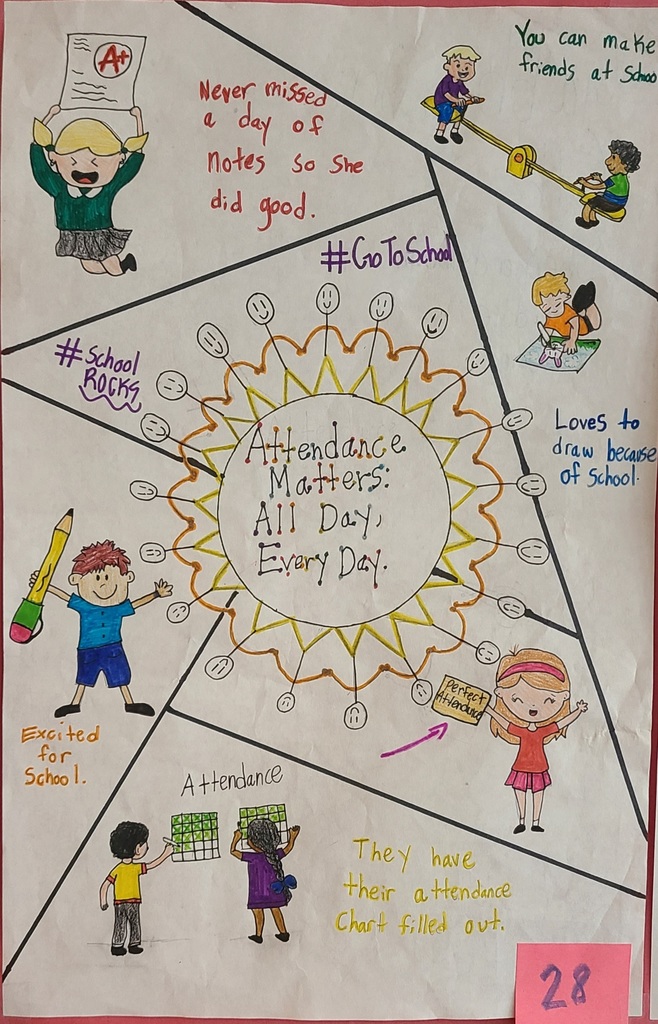 A+
Never missed
a day of
notes so she
did good.
You can make
friends at School
#GoToSchool
#School
ROCKS
Attendance
Matters:
All Day,
Every Day.
Loves to
draw because
of School.
Excited
for
School.
Perfect
Attendance
Attendance
They have
their attendance
Chart filled out.
28